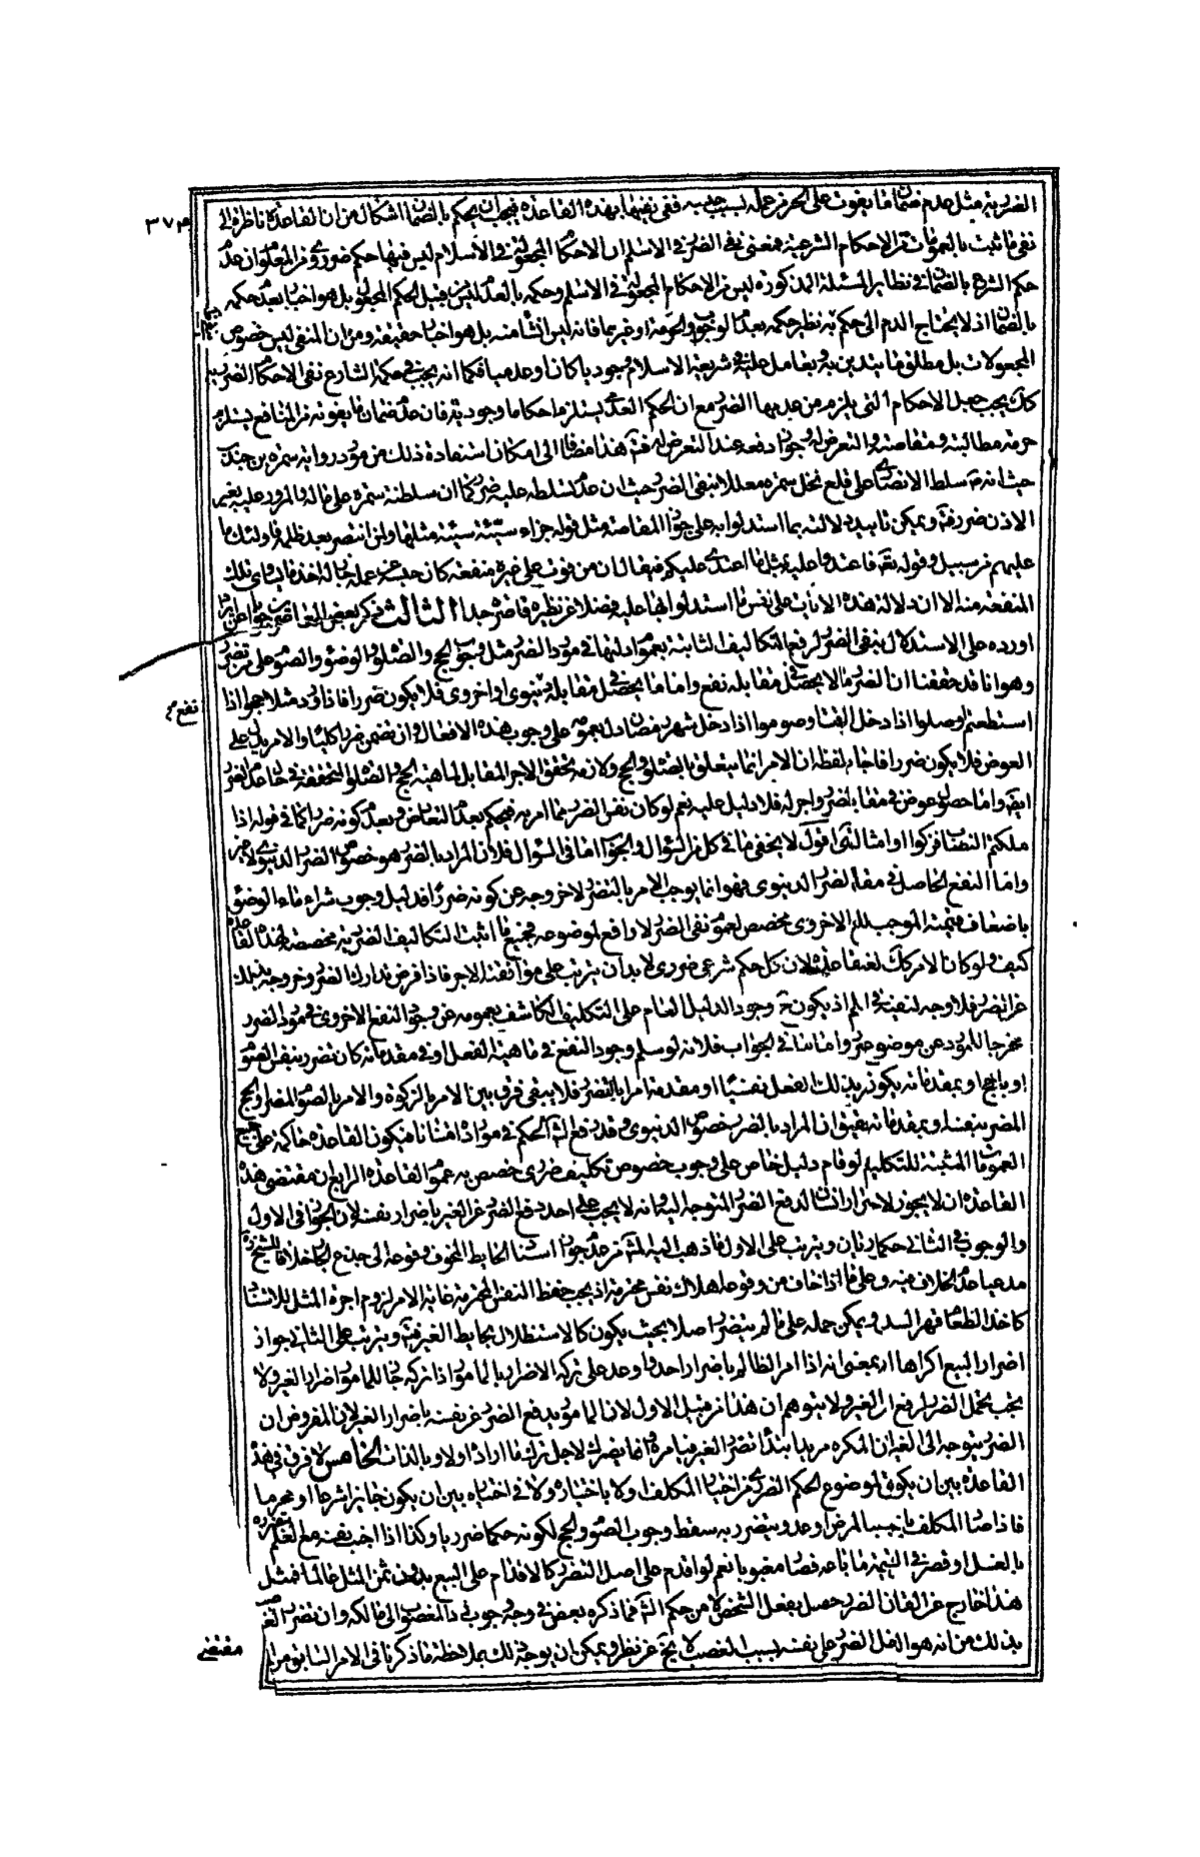 ٣٧٣
الضررية مثل عدم ضمان ما يفوت على الحر من عمله بسبب حبسه ففى نفيها بهذه القاعدة فيجب ان يحكم بالضمان اشكال من ان القاعدة ناظرة الى
نفى ما ثبت بالعمومات من الاحكام الشرعية فمعنى نفى الضرر فى الاسلام ان الاحكام المجعولة فى الاسلام ليس فيها حكم ضررى و من المعلوم ان عدم
حكم الشرع بالضمان فى نظاير المسئلة المذكورة ليس من الاحكام المجعولة فى الاسلام و حكمه بالعدم ليس من قبيل الحكم المجعول بل هو اخبار بعدم حكمه
بالضمان اذ لا يحتاج العدم الى حكم به نظير حكمه بعدم الوجوب و الحرمة او غيرهما فانه ليس انشاء منه بل هو اخبار حقيقة و من ان المنفى ليس خصوص
المجعولات بل مطلق ما يتدين به و يعامل عليه فى شريعة الاسلام وجوديا كان او عدميا فكما انه يجب فى حكمة الشارع نفى الاحكام الضررية
كك يجب جعل الاحكام التى يلزم من عدمها الضرر مع ان الحكم العدمى يستلزم احكاما وجودية فان عدم ضمان ما يفوته من المنافع يستلزم
حرمة مطالبته و مقاصته و التعرض له و جواز دفعه عند التعرض له فت هذا مضافا الى امكان استفادة ذلك من مورد رواية سمرة بن جندب
حيث انه ص سلط الانصارى على قلع نخل سمرة معللا بنفى الضرر حيث ان عدم تسلطه عليه ضرر كما ان سلطنة سمرة على ماله و المرور عليه بغير
الاذن ضرر فت و يمكن تاييد دلالته بما استدلوا به على جواز المقاصة مثل قوله جزاء سيئة سيئة مثلها و لمن انتصر بعد ظلمه فاولئك ما
عليهم من سبيل و قوله تع فاعتدوا عليه بمثل ما اعتدى عليكم فيقال ان من فوت على غيره منفعة كان حبسه عن عمله جاز له اخذ ما يساوى تلك
المنفعة منه الا ان دلالة هذه الآيات على نفس ما استدلوا بها عليه فضلا عن نظيره قاصرة جدا الثالث ذكر بعض المعاصرين جوابا عن ايراد
اورده على الاستدلال بنفى الضرر لرفع التكاليف الثابتة بعموم ادلتها فى مورد الضرر مثل وجوب الحج و الصلوة و الوضوء و الصوم على من تضرر
و هو انا قد حققنا ان الضرر ما لا يحصل فى مقابله نفع و اما ما يحصل فى مقابله نفع دنيوى او اخروى فلا يكون ضررا فاذا ورد مثلا حجوا اذا
نفع
استطعتم او صلوا اذا دخل الوقت او صوموا اذا دخل شهر رمضان دل بعمومه على وجوب هذه الافعال و ان تضمن ضررا كليا و الامر يدل على
العوض فلا يكون ضررا فاجاب بقوله ان الامر انما يتعلق بالصلوة و الحج و لازمه تحقق الاجر المقابل لماهية الحج و الصلوة المتحققة فى حال عدم الضرر
ايضا و اما حصول عوض فى مقابل الضرر و اجر له فلا دليل عليه نعم لو كان نفس الضرر مما امر به فيحكم بعدم التعارض و بعدم كونه ضررا كما فى قوله اذا
ملكتم النصاب فزكوا و امثاله اقول لا يخفى ما فى كل من السؤال و الجواب اما فى السؤال فلان المراد بالضرر هو خصوص الضرر الدنيوى لا غير
و اما النفع الحاصل فى مقابل الضرر الدنيوى فهو انما يوجب الامر بالتضرر لا خروجه عن كونه ضررا فدليل وجوب شراء ماء الوضوء
باضعاف قيمته الموجب للنفع الاخروى مخصص لعموم نفى الضرر لا رافع لموضوعه فجميع ما اثبت التكاليف الضررية مخصصة لهذه القاعدة
كيف و لو كان الامر كك لغت القاعدة لان كل حكم شرعى ضررى لا بد ان يترتب على موافقته الاجر فاذا فرض تدارك الضرر و خروجه بذلك
عن الضرر فلا وجه لنفيه فى الاسلام اذ يكون ح وجود الدليل العام على التكليف الكاشف بعمومه عن وجود النفع الاخروى فى مورد الضرر
مخرجا للمورد عن موضوع الضرر و اما ثانيا فى الجواب فلانه لو سلم وجود النفع فى ماهية الفعل او فى مقدماته كان تضرر بنفس الصوم
او بالحج او بمقدماته يكون بذلك الفعل نفسيا او مقدمة امرا بالتضرر فلا يبقى فرق بين الامر بالزكوة و الامر بالصوم المضر او الحج
المضر بنفسه او بمقدماته بقى ان المراد بالضرر خصوص الدنيوى و قد رفع الش الحكم فى موارده امتنانا فيكون القاعدة حاكمة على جميع
العمومات المثبتة للتكليف نعم لو قام دليل خاص على وجوب خصوص تكليف ضررى خصص به عموم القاعدة الرابع ان مقتضى هذه
القاعدة ان لا يجوز لاحد اضرار انسان لدفع الضرر المتوجه اليه و انه لا يجب على احد دفع الضرر عن الغير باضرار نفسه لان الجواز فى الاول
و الوجوب فى الثانى حكمان ضرريان و يترتب على الاول ما ذهب اليه المش من عدم جواز اسناد الحايط المخوف وقوعه الى جذع الجار خلافا للشيخ ره
مدعيا عدم الخلاف فيه و على ما اذا خاف من وقوعه هلاك نفس محترمة اذ يجب حفظ النفس المحترمة غاية الامر لزوم اجرة المثل للاسناد
كاخذ الطعام قهرا لسد الرمق و يمكن حمله على ما لم يتضرر اصلا بحيث يكون كالاستظلال بحايط الغير فت و يترتب على الثانى جواز
اضرار الغير اكراها او بمعنى انه اذا امر الظالم باضرار احد و اوعد على تركه الاضرار بالمامور اذا تركه جاز للمامور اضرار الغير و لا
يجب تحمل الضرر لرفع الضرر عن الغير و لا يتوهم ان هذا من قبيل الاول لان المامور يدفع الضرر عن نفسه باضرار الغير لان المفروض ان
الضرر يتوجه الى الغير لان المكره مريد ابتداء تضرر الغير فيامره و انما يضره لاجل ترك ما اراده اولا و بالذات الخامس لا فرق فى هذه
القاعدة بين ان يكون الموضوع للحكم الضررى من اختيار المكلف او لا باختياره و لا فى اختياره بين ان يكون جايزا شرعا او محرما
فاذا صار المكلف باختياره سببا لمرض او عدو يتضرر به سقط وجوب الصوم و الحج لكونه حكما ضرريا و كذا اذا اجنب نفسه مع العلم بتضرره
بالغسل او قصر فى القيمة ما باعه فصار مغبونا نعم لو اقدم على اصل التضرر كالاقدام على البيع بدون ثمن المثل عالما فمثل
هذا خارج عن القاعدة لان الضرر حصل بفعل الشخص لا من حكم الش فما ذكره بعض فى وجه وجوب رد المغصوب الى مالكه و ان تضرر الغاصب
بذلك من انه هو الذى ادخل الضرر على نفسه بسبب الغصب لا يخ عن نظر و يمكن ان يوجه ذلك بملاحظة ما ذكرنا فى الامر السابق من ان
مقتضى